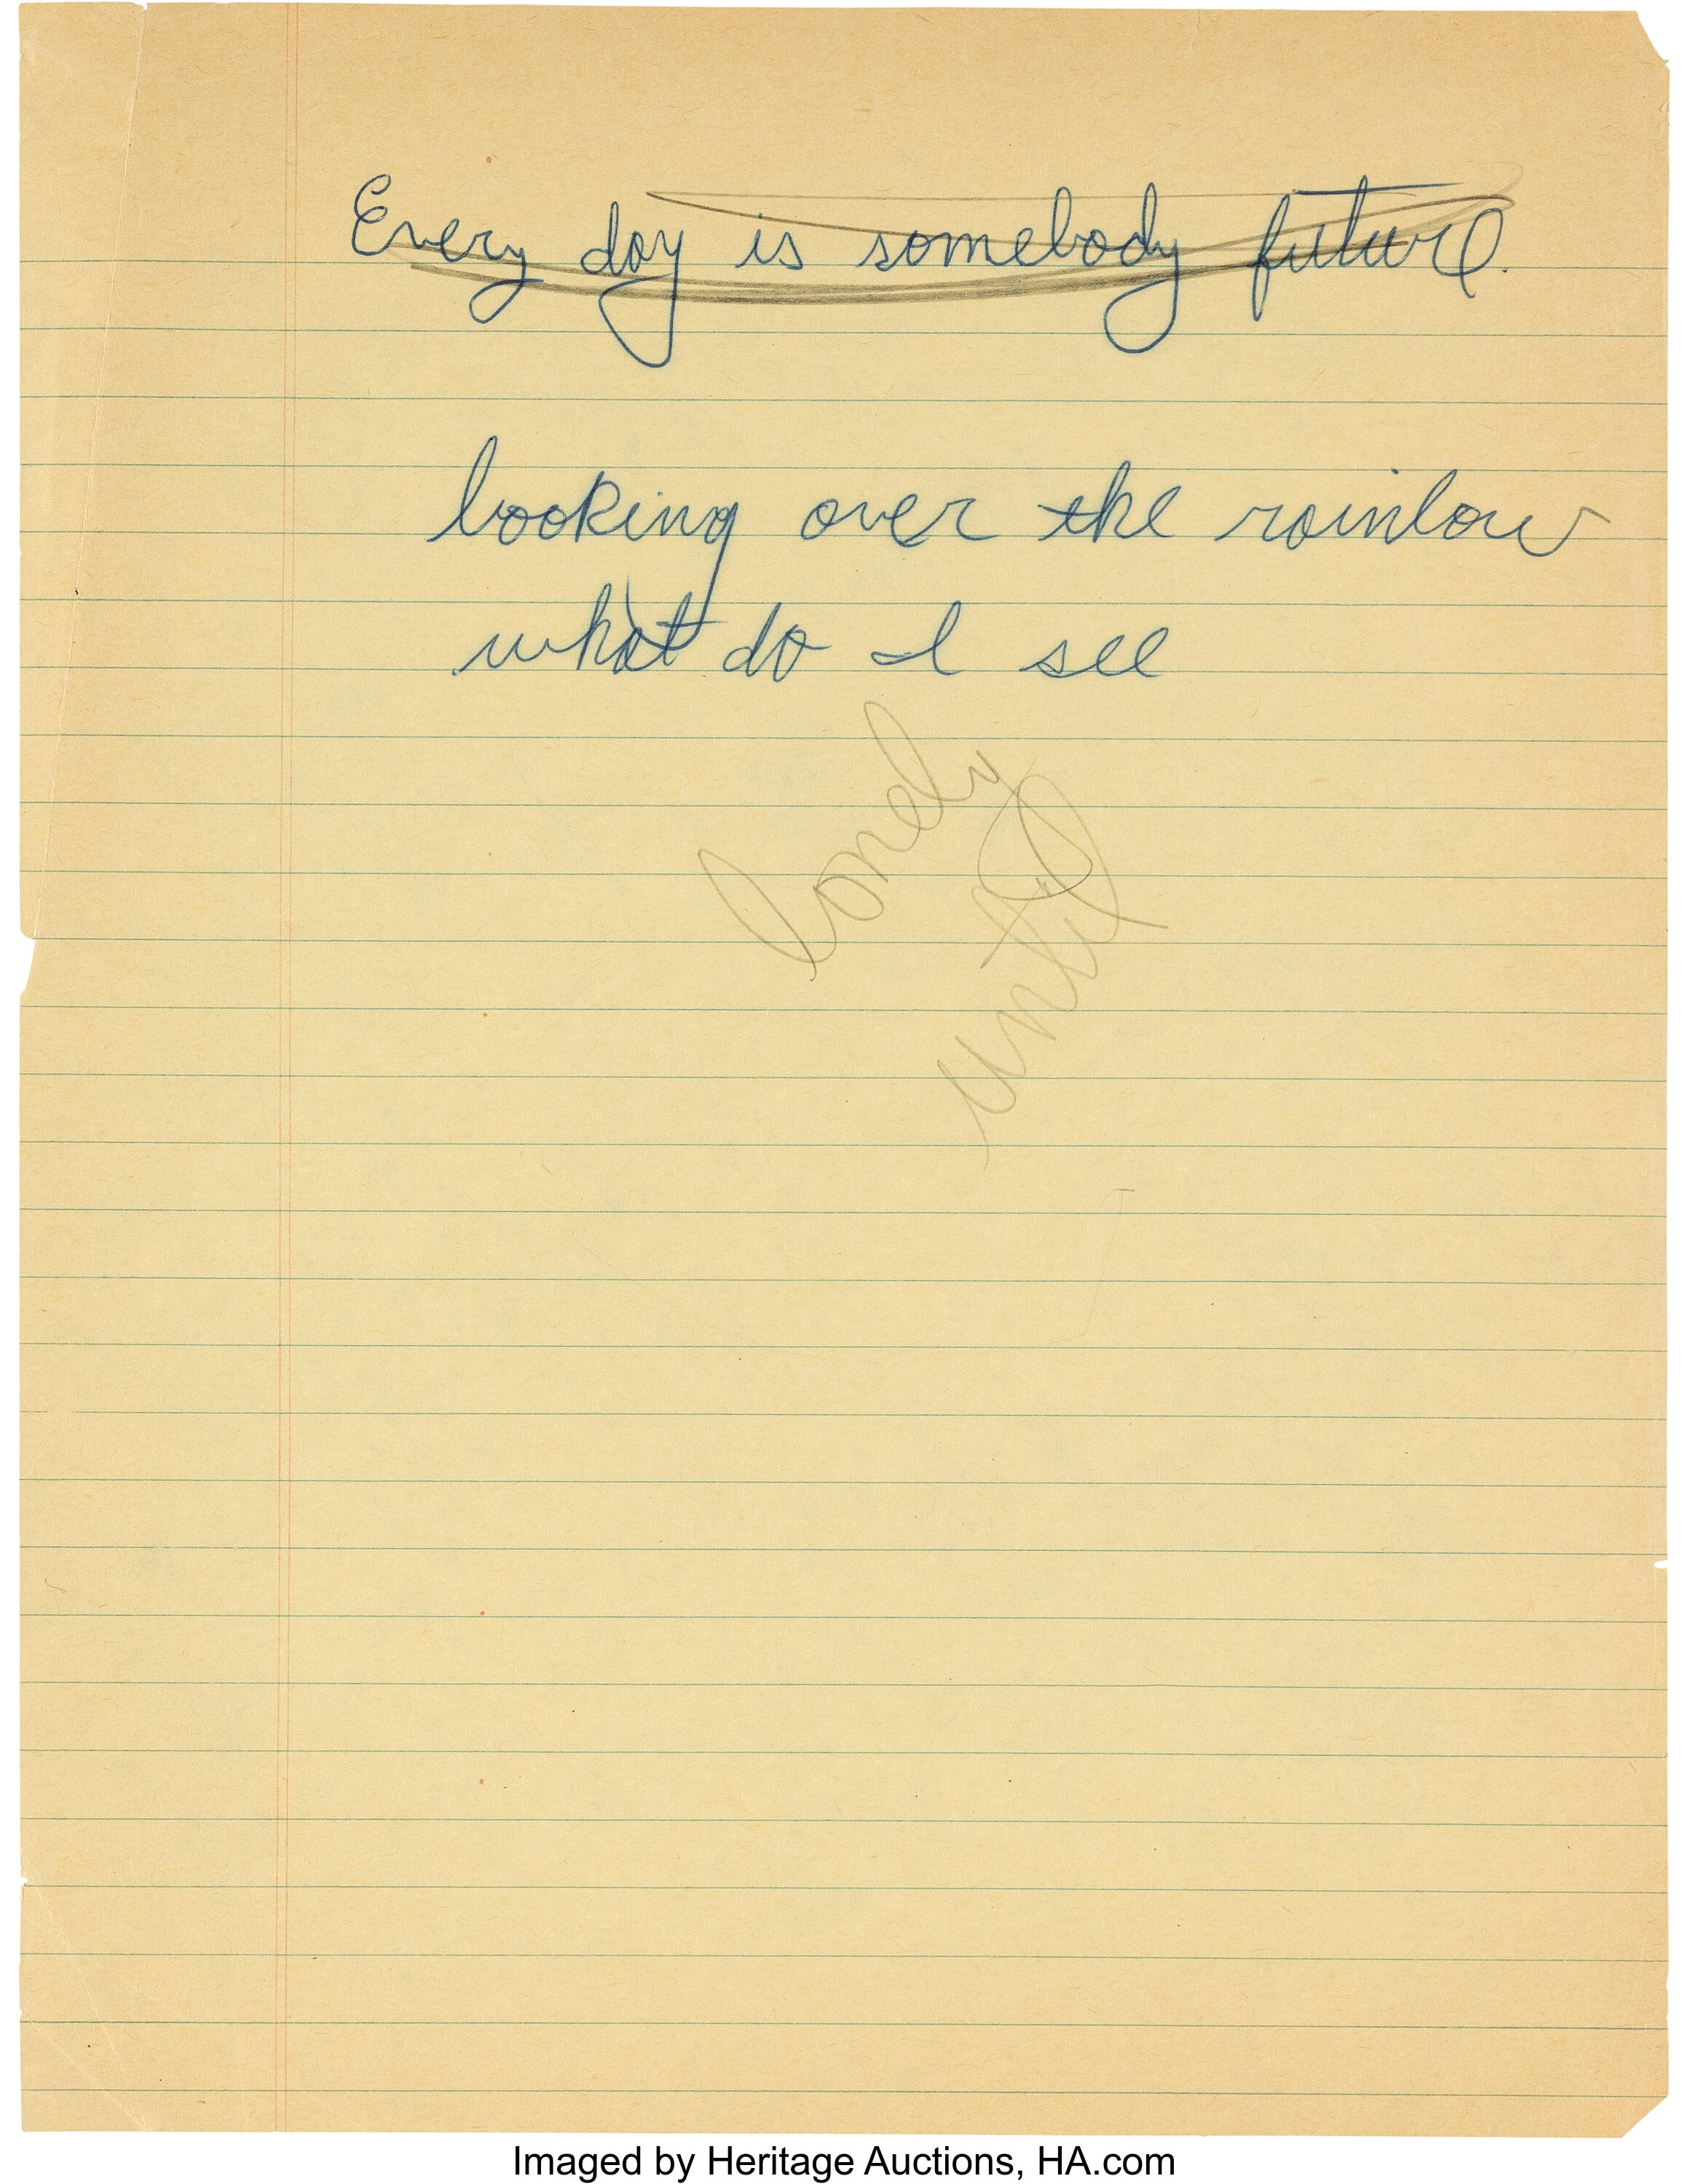 Every day is somebody future.
looking over the rainbow
what do I see
lonely
until
Imaged by Heritage Auctions, HA.com